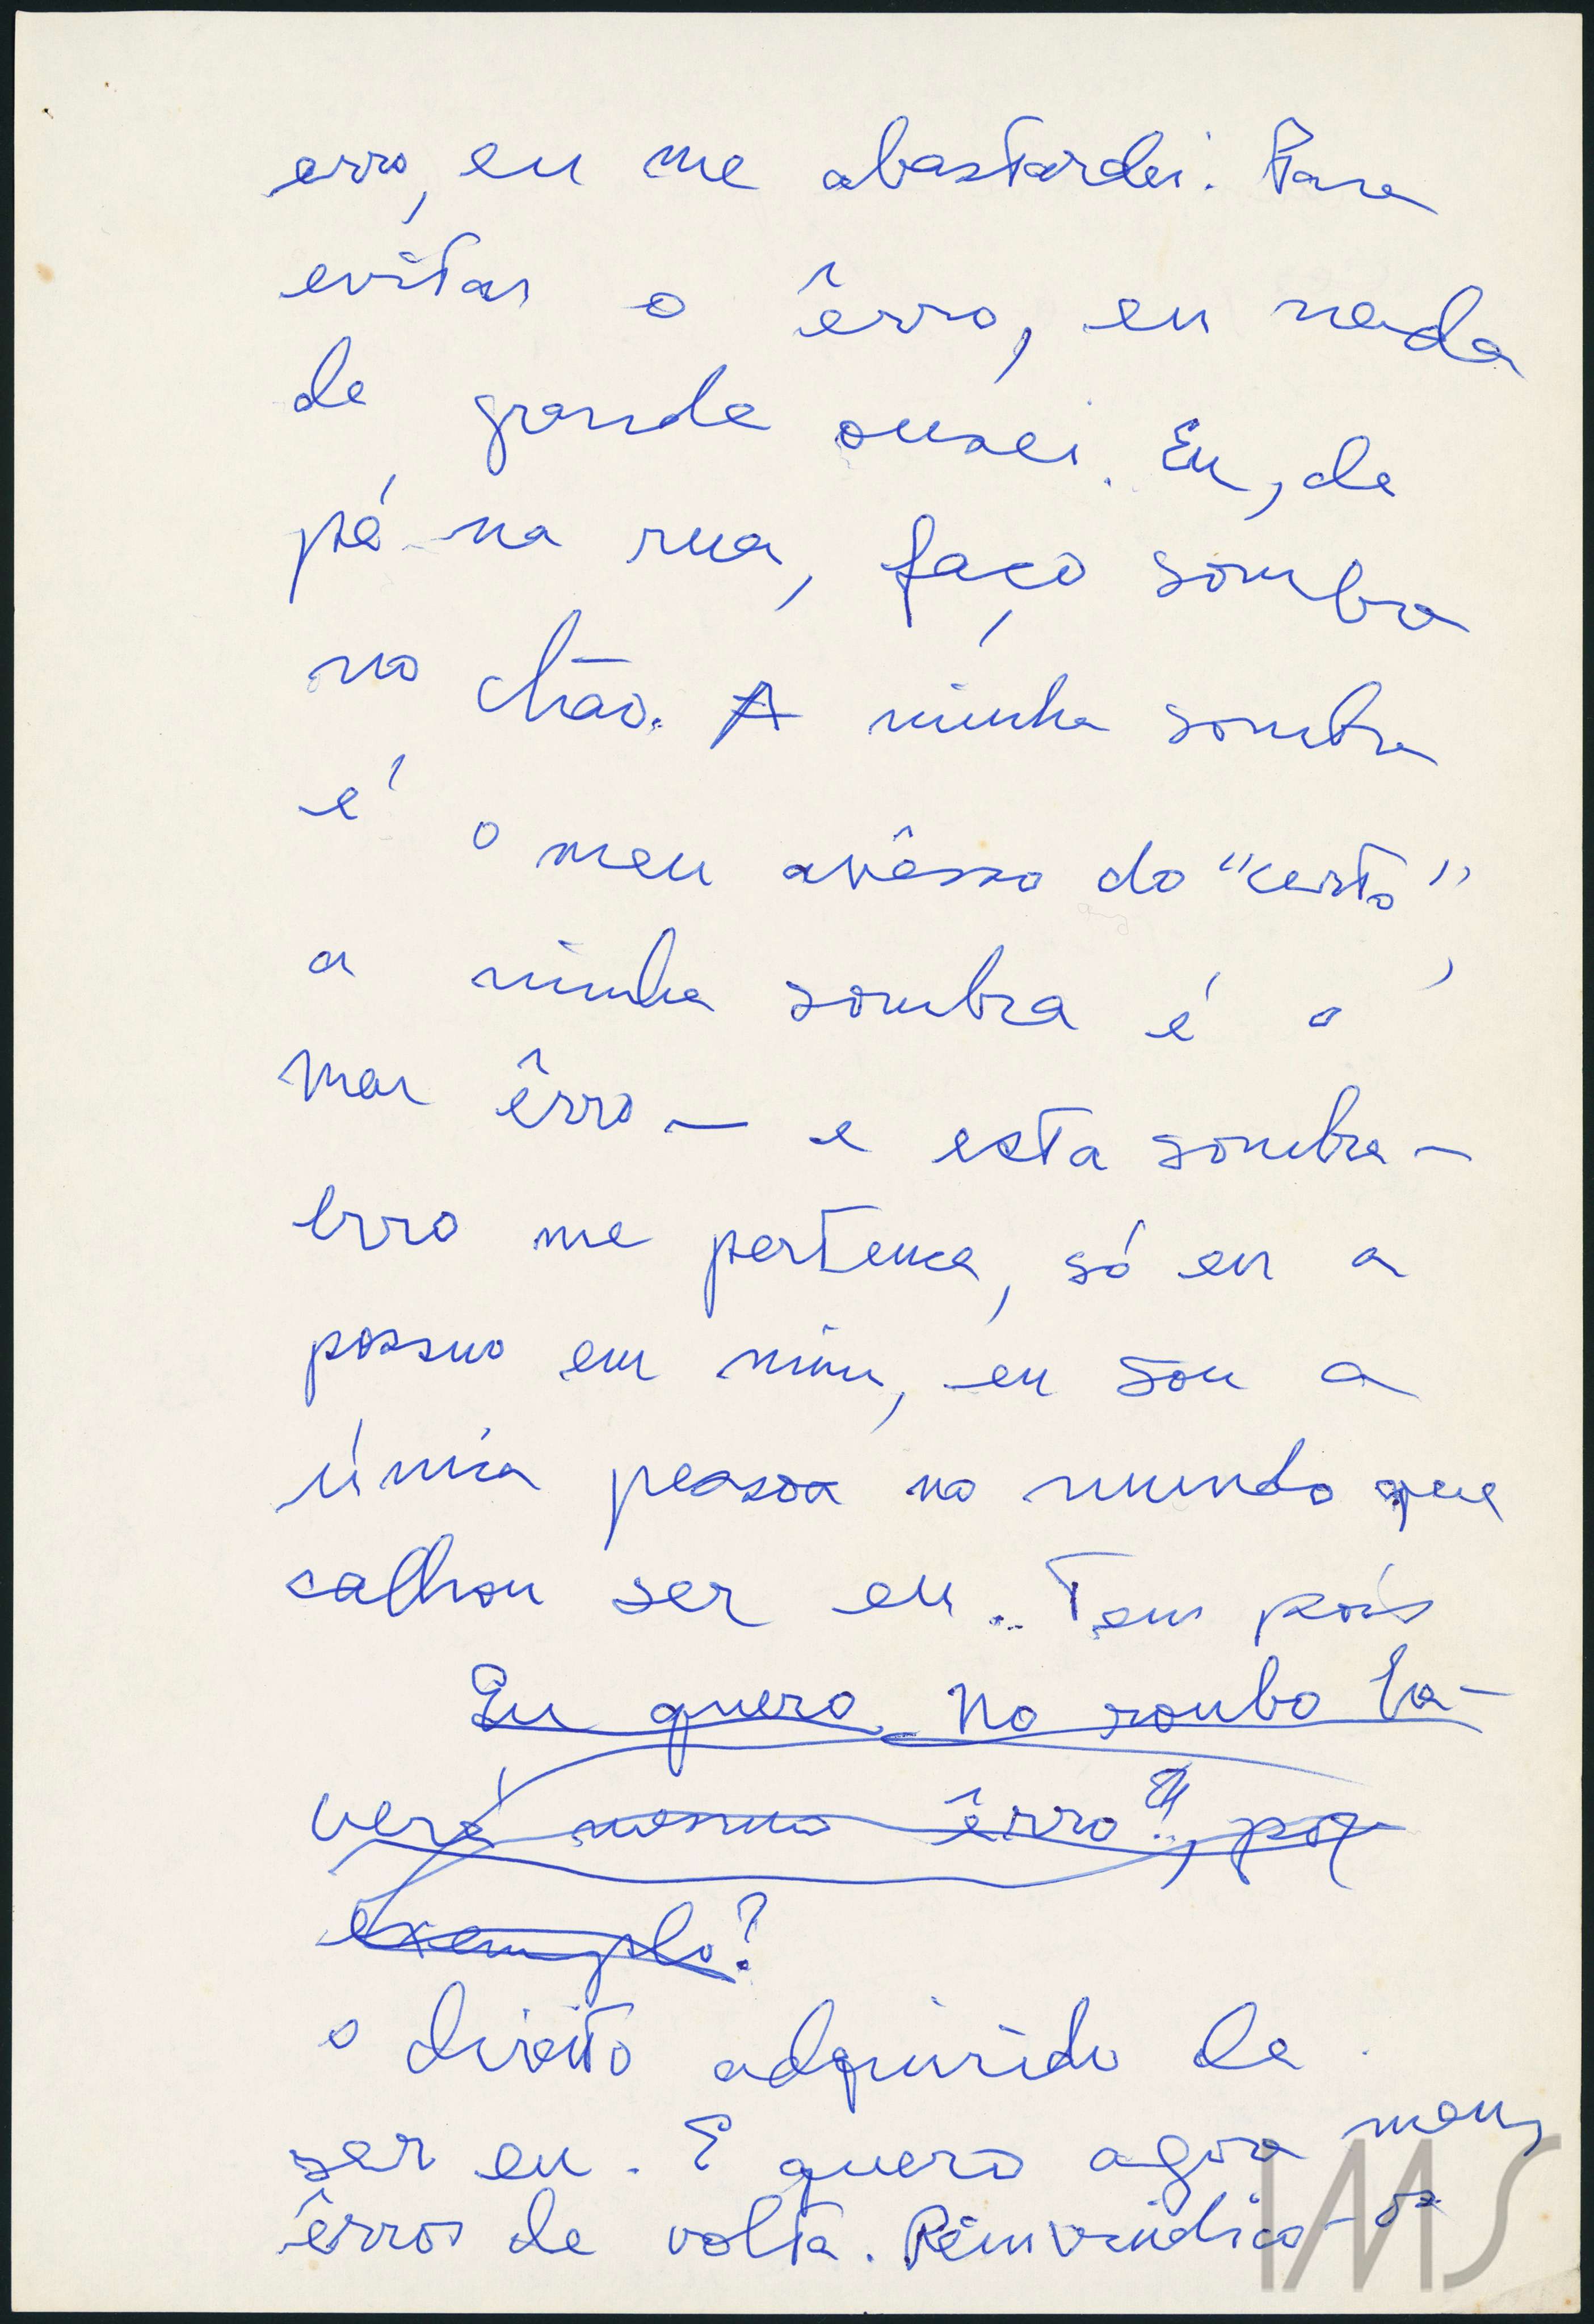 erro, eu me abastardei. Para
evitar o êrro, eu nada
de grande ousei. Eu, de
pé na rua, faço sombra
no chão. A minha sombra
é o meu avêsso do "certo",
a minha sombra é o
meu êrro — e esta sombra-
erro me pertence, só eu a
possuo em mim, eu sou a
única pessoa no mundo que
calhou ser eu. Tem pois
Eu quero No roubo ha-
verá mesmo êrro, por
exemplo?
o direito adquirido de
ser eu. E quero agora meus
êrros de volta. Reinvindico-os
IMS